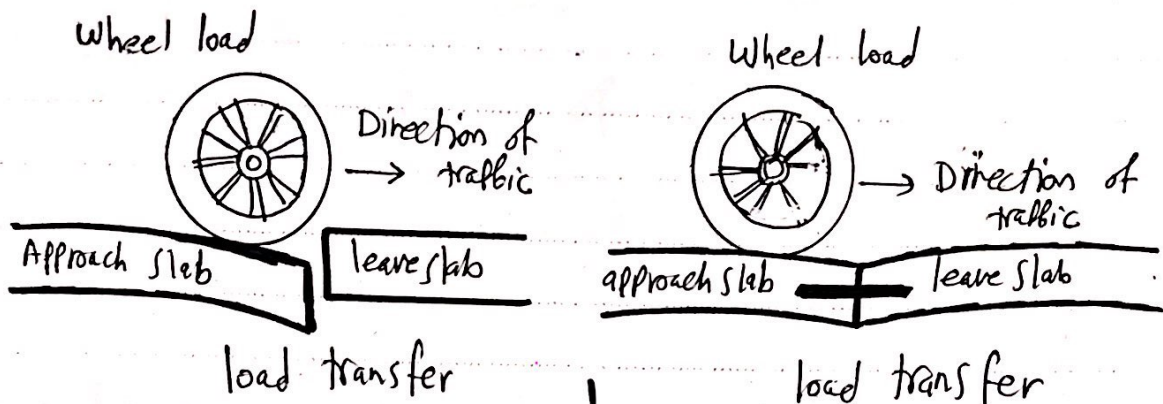 Wheel load
Direction of
traffic
Approach slab
leave slab
load transfer
Wheel load
Direction of
traffic
approach slab
leave slab
load transfer